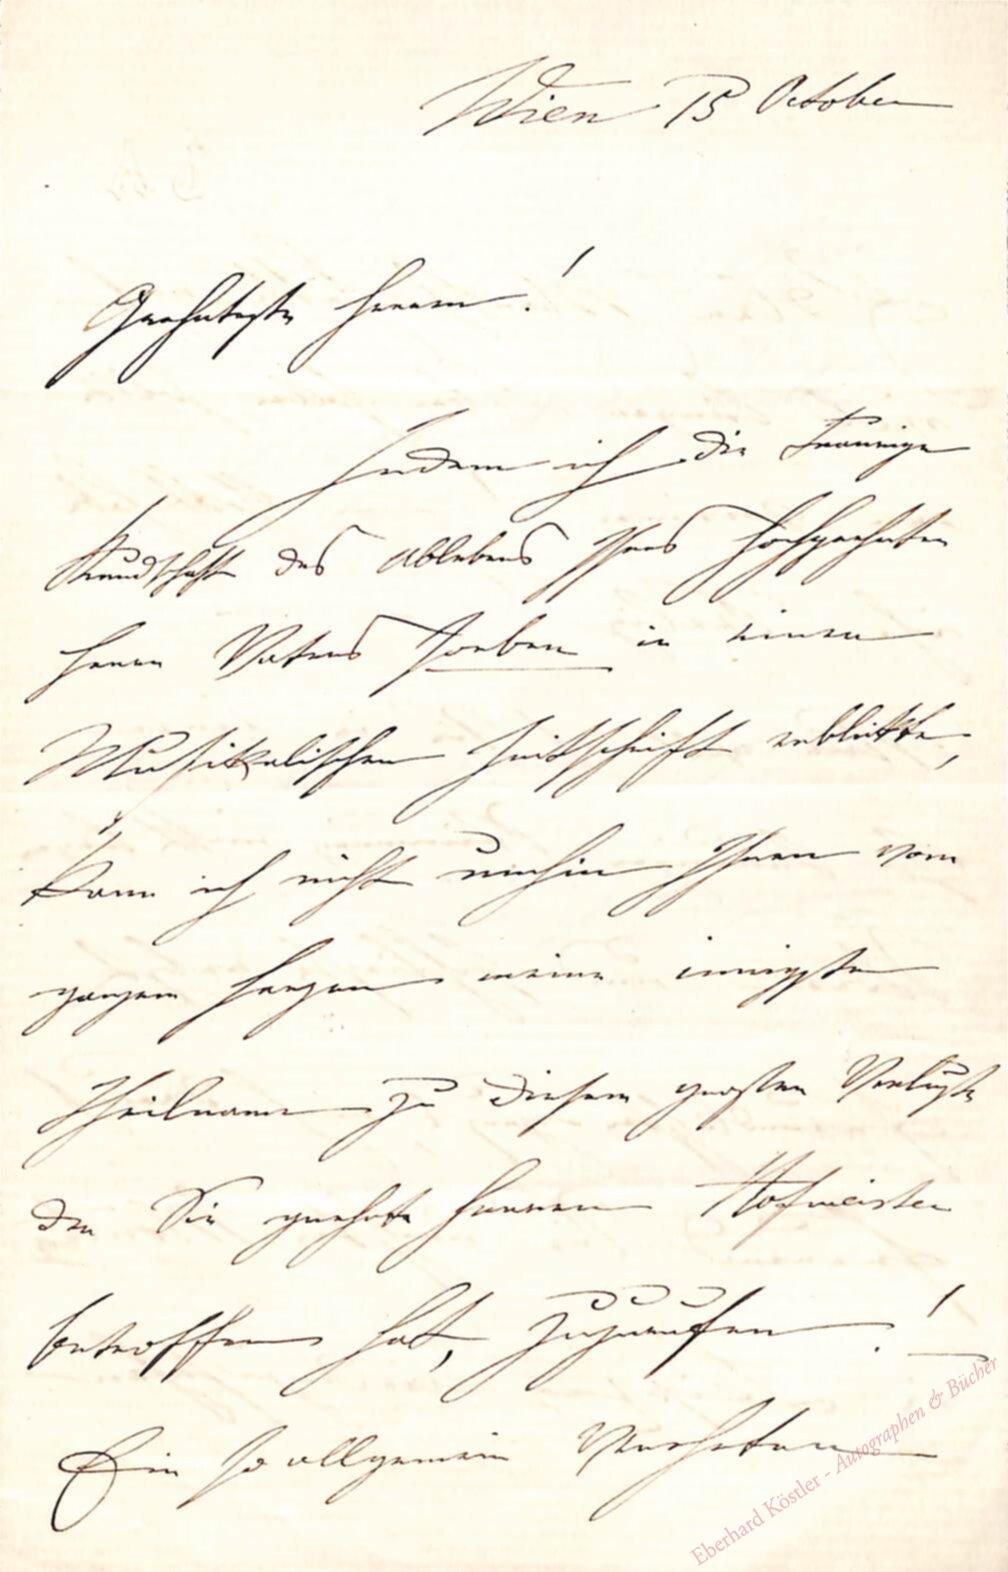 Wien 15 October
Geehrteste Herren!
Indem ich die traurige
Kundschaft des Ablebens Ihres hochgeehrten
Herrn Vaters soeben in einer
Musikalischen Zeitschrift erblickte,
kann ich nicht umhin Ihnen vom
ganzem Herzen meine innigste
Theilname zu diesem großen Verluste
der Sie geehrte Herren Hofmeister
betroffen hat, zuzurufen!
Ein so allgemein Verehrter
Eberhard Köstler - Autographen & Bücher